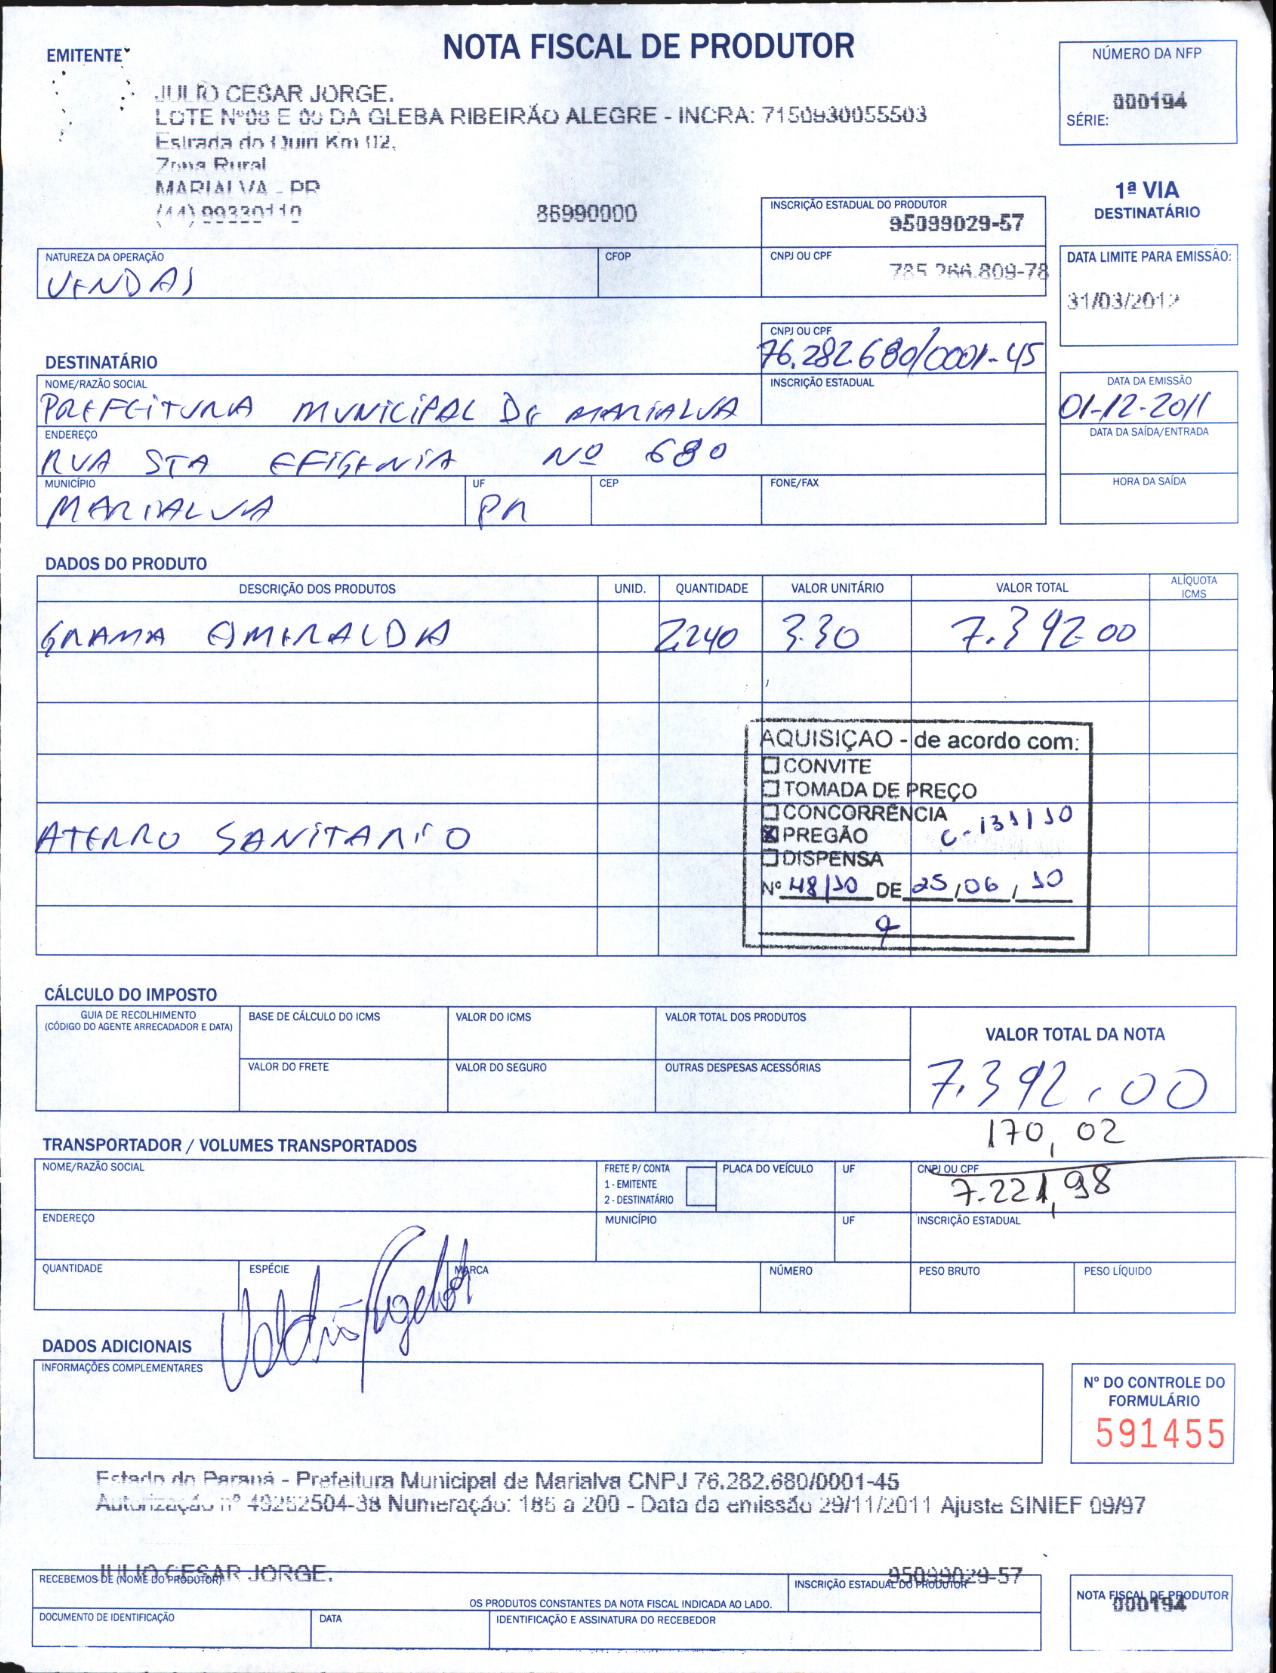 NOTA FISCAL DE PRODUTOR
EMITENTE
JULIO CESAR JORGE.
LOTE Nº08 E 09 DA GLEBA RIBEIRÃO ALEGRE - INCRA: 7150930055503
Estrada do Quiri Km 02,
Zona Rural
MARIALVA - PR
(44) 99330110 86990000
NÚMERO DA NFP
000194
SÉRIE:
1ª VIA
DESTINATÁRIO
INSCRIÇÃO ESTADUAL DO PRODUTOR
95099029-57
NATUREZA DA OPERAÇÃO
VENDAS
CFOP
CNPJ OU CPF
785.266.809-78
DATA LIMITE PARA EMISSÃO:
31/03/2012
DESTINATÁRIO
CNPJ OU CPF
76.282.680/0001-45
NOME/RAZÃO SOCIAL
PREFEITURA MUNICIPAL DE MARIALVA
INSCRIÇÃO ESTADUAL
DATA DA EMISSÃO
01-12-2011
ENDEREÇO
RUA STA EFIGENIA Nº 680
DATA DA SAÍDA/ENTRADA
MUNICÍPIO
MARIALVA
UF
PR
CEP
FONE/FAX
HORA DA SAÍDA
DADOS DO PRODUTO
DESCRIÇÃO DOS PRODUTOS UNID. QUANTIDADE VALOR UNITÁRIO VALOR TOTAL ALÍQUOTA
ICMS
GRAMA ESMERALDA 2240 3.30 7.392.00
AQUISIÇAO - de acordo com:
CONVITE
TOMADA DE PREÇO
CONCORRÊNCIA
PREGÃO C-131/10
DISPENSA
Nº 48/10 DE 25/06/10
ATERRO SANITARIO
CÁLCULO DO IMPOSTO
GUIA DE RECOLHIMENTO
(CÓDIGO DO AGENTE ARRECADADOR E DATA)
BASE DE CÁLCULO DO ICMS
VALOR DO ICMS
VALOR TOTAL DOS PRODUTOS
VALOR TOTAL DA NOTA
7.392,00
VALOR DO FRETE
VALOR DO SEGURO
OUTRAS DESPESAS ACESSÓRIAS
170,02
TRANSPORTADOR / VOLUMES TRANSPORTADOS
NOME/RAZÃO SOCIAL
FRETE P/ CONTA
1 - EMITENTE
2 - DESTINATÁRIO
PLACA DO VEÍCULO
UF
CNPJ OU CPF
7.221,98
ENDEREÇO
MUNICÍPIO
UF
INSCRIÇÃO ESTADUAL
QUANTIDADE
ESPÉCIE
MARCA
NÚMERO
PESO BRUTO
PESO LÍQUIDO
DADOS ADICIONAIS
INFORMAÇÕES COMPLEMENTARES
Nº DO CONTROLE DO
FORMULÁRIO
591455
Estado do Paraná - Prefeitura Municipal de Marialva CNPJ 76.282.680/0001-45
Autorização nº 49252504-38 Numeração: 185 a 200 - Data da emissão 29/11/2011 Ajuste SINIEF 09/97
JULIO CESAR JORGE. 95099029-57
RECEBEMOS DE (NOME DO PRODUTOR)
OS PRODUTOS CONSTANTES DA NOTA FISCAL INDICADA AO LADO.
INSCRIÇÃO ESTADUAL DO PRODUTOR
NOTA FISCAL DE PRODUTOR
000194
DOCUMENTO DE IDENTIFICAÇÃO
DATA
IDENTIFICAÇÃO E ASSINATURA DO RECEBEDOR